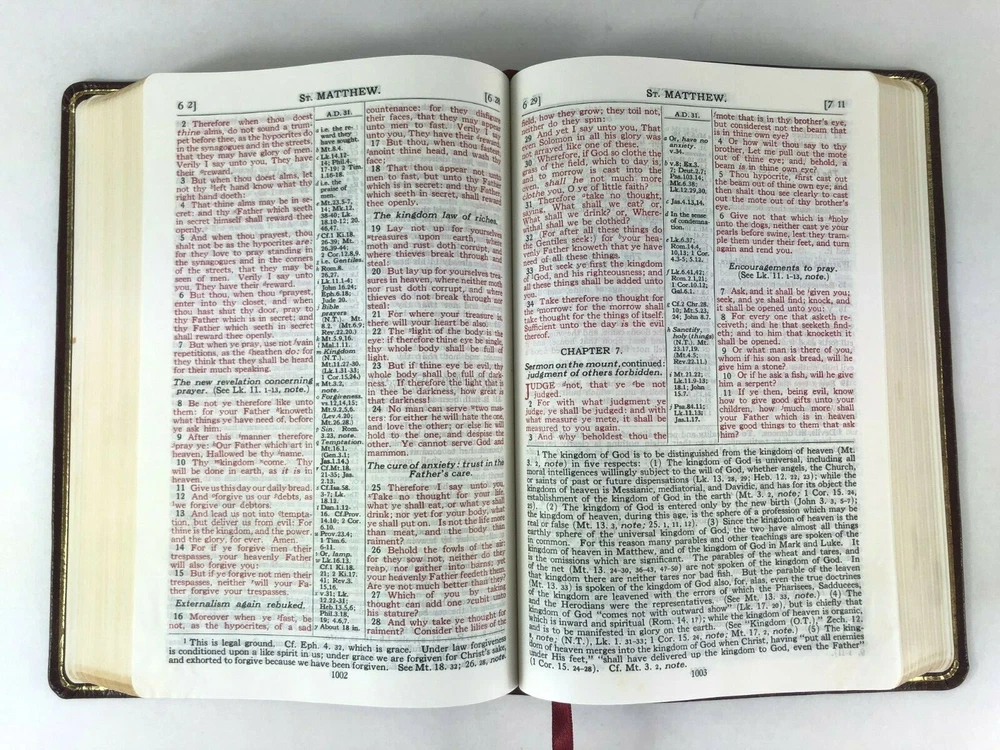 6 2]
ST. MATTHEW.
[6 28
2 Therefore when thou doest
thine alms, do not sound a trum-
pet before thee, as the hypocrites do
in the synagogues and in the streets,
that they may have glory of men.
Verily I say unto you, They have
their reward.
3 But when thou doest alms, let
not thy left hand know what thy
right hand doeth:
4 That thine alms may be in se-
cret: and thy Father which seeth
in secret himself shall reward thee
openly.
5 And when thou prayest, thou
shalt not be as the hypocrites are:
for they love to pray standing in
the synagogues and in the corners
of the streets, that they may be
seen of men. Verily I say unto
you, They have their reward.
6 But thou, when thou prayest,
enter into thy closet, and when
thou hast shut thy door, pray to
thy Father which is in secret; and
thy Father which seeth in secret
shall reward thee openly.
7 But when ye pray, use not vain
repetitions, as the heathen do: for
they think that they shall be heard
for their much speaking.
The new revelation concerning
prayer. (See Lk. 11. 1-13, note.)
8 Be not ye therefore like unto
them: for your Father knoweth
what things ye have need of, before
ye ask him.
9 After this manner therefore
pray ye: Our Father which art in
heaven, Hallowed be thy name.
10 Thy kingdom come. Thy
will be done in earth, as it is in
heaven.
11 Give us this day our daily bread.
12 And forgive us our debts, as
we forgive our debtors.
13 And lead us not into tempta-
tion, but deliver us from evil: For
thine is the kingdom, and the power,
and the glory, for ever. Amen.
14 For if ye forgive men their
trespasses, your heavenly Father
will also forgive you:
15 But if ye forgive not men their
trespasses, neither will your Fa-
ther forgive your trespasses.
Externalism again rebuked.
16 Moreover when ye fast, be
not, as the hypocrites, of a sad
A.D. 31.
a i.e. the re-
ward they
have sought.
b Mt.8.4.
c Lk.14.12-
14; Phil.4.
17-19; 2 Tim.
1.16-18.
d i.e. the
praise of
men.
e Mt.23.5-7,
14; Mk.12.
38-40; Lk.
18.10-12; 20.
46,47.
f Cf.1 Ki.18.
26-39; Mt.
26.39-44;
2 Cor.12.8,9.
g i.e. Gentiles.
h Rom.8.
26,27.
i Lk.11.1-4;
John 16.24;
Eph.6.18;
Jude 20.
j Bible
prayers
(N.T.). Mt.
8.2. (Mt.6.9;
Rev.22.20.)
k Mt.5.9,16.
l Mal.1.11.
m Kingdom
(N.T.).
Mt.11.27-30.
(Lk.1.31-33;
1 Cor.15.24.)
n Mt.3.2,
note.
o Forgiveness.
vs.12,14,15;
Mt.9.2,5,6.
(Lev.4.20;
Mt.26.28.)
p Sin. Rom.
3.23, note.
q Temptation.
Mt.16.1.
(Gen.3.1;
Jas.1.14.)
r Cf.Mt.18.
21-35; Jas.
2.13.
s Cf.Isa.58.
3-7; Lk.
18.12.
t Dan.1.12-
16. Cf.Prov.
14.10; 2 Cor.
6.10.
u Prov.23.4;
1 Tim.6.
6-11.
v Or, lamp.
w Lk.16.13.
Cf.1 Ki.18.
21; 2 Ki.17.
41; Rev.3.
15,16.
x v.31; Lk.
12.22-31;
Heb.13.5,6;
Phil.3.18,
19; 4.6,7.
y About 18 in.
countenance: for they disfigure
their faces, that they may appear
unto men to fast. Verily I say
unto you, They have their reward.
17 But thou, when thou fastest,
anoint thine head, and wash thy
face;
18 That thou appear not unto
men to fast, but unto thy Father
which is in secret: and thy Father,
which seeth in secret, shall reward
thee openly.
The kingdom law of riches.
19 Lay not up for yourselves
treasures upon earth, where
moth and rust doth corrupt, and
where thieves break through and
steal:
20 But lay up for yourselves trea-
sures in heaven, where neither moth
nor rust doth corrupt, and where
thieves do not break through nor
steal:
21 For where your treasure is,
there will your heart be also.
22 The light of the body is the
eye: if therefore thine eye be single,
thy whole body shall be full of
light.
23 But if thine eye be evil, thy
whole body shall be full of dark-
ness. If therefore the light that is
in thee be darkness, how great is
that darkness!
24 No man can serve two mas-
ters: for either he will hate the one,
and love the other; or else he will
hold to the one, and despise the
other. Ye cannot serve God and
mammon.
The cure of anxiety: trust in the
Father's care.
25 Therefore I say unto you,
Take no thought for your life,
what ye shall eat, or what ye shall
drink; nor yet for your body, what
ye shall put on. Is not the life more
than meat, and the body than
raiment?
26 Behold the fowls of the air:
for they sow not, neither do they
reap, nor gather into barns; yet
your heavenly Father feedeth them.
Are ye not much better than they?
27 Which of you by taking
thought can add one cubit unto
his stature?
28 And why take ye thought for
raiment? Consider the lilies of the
1 This is legal ground. Cf. Eph. 4. 32, which is grace. Under law forgiveness
is conditioned upon a like spirit in us; under grace we are forgiven for Christ's sake,
and exhorted to forgive because we have been forgiven. See Mt. 18. 32; 26. 28, note.
1002
6 29]
ST. MATTHEW.
[7 11
field, how they grow; they toil not,
neither do they spin:
29 And yet I say unto you, That
even Solomon in all his glory was
not arrayed like one of these.
30 Wherefore, if God so clothe the
grass of the field, which to day is,
and to morrow is cast into the
oven, shall he not much more
clothe you, O ye of little faith?
31 Therefore take no thought,
saying, What shall we eat? or,
What shall we drink? or, Where-
withal shall we be clothed?
32 (For after all these things do
the Gentiles seek:) for your hea-
venly Father knoweth that ye have
need of all these things.
33 But seek ye first the kingdom
of God, and his righteousness; and
all these things shall be added unto
you.
34 Take therefore no thought for
the morrow: for the morrow shall
take thought for the things of itself.
Sufficient unto the day is the evil
thereof.
CHAPTER 7.
Sermon on the mount, continued:
judgment of others forbidden.
JUDGE not, that ye be not
judged.
2 For with what judgment ye
judge, ye shall be judged: and with
what measure ye mete, it shall be
measured to you again.
3 And why beholdest thou the
A.D. 31.
a Or, have no
anxiety.
v.34.
b v.8; Ex.3.
7; Deut.2.7;
Psa.103.14;
Mk.6.38;
Lk.12.29,30.
c Jas.4.13,14.
d In the sense
of condemna-
tion.
e Lk.6.37;
Rom.14.4,
10,13; 1 Cor.
4.3-5; 5.12.
f Lk.6.41,42;
Rom.2.1,21;
1 Cor.10.12;
Gal.6.1.
g Cf.2 Chr.28.
10; Mt.5.23,
24; John 8.7.
h Sanctify,
holy (things)
(N.T.). Mt.
23.17,19.
(Mt.4.5;
Rev.22.11.)
i Mt.21.22;
Mk.11.24;
Lk.11.9-13;
18.1; John
15.7.
j Psa.84.11;
Lk.11.13;
Jas.1.17.
mote that is in thy brother's eye,
but considerest not the beam that
is in thine own eye?
4 Or how wilt thou say to thy
brother, Let me pull out the mote
out of thine eye; and, behold, a
beam is in thine own eye?
5 Thou hypocrite, first cast out
the beam out of thine own eye; and
then shalt thou see clearly to cast
out the mote out of thy brother's
eye.
6 Give not that which is holy
unto the dogs, neither cast ye your
pearls before swine, lest they tram-
ple them under their feet, and turn
again and rend you.
Encouragements to pray.
(See Lk. 11. 1-13, note.)
7 Ask, and it shall be given you;
seek, and ye shall find; knock, and
it shall be opened unto you:
8 For every one that asketh re-
ceiveth; and he that seeketh find-
eth; and to him that knocketh it
shall be opened.
9 Or what man is there of you,
whom if his son ask bread, will he
give him a stone?
10 Or if he ask a fish, will he give
him a serpent?
11 If ye then, being evil, know
how to give good gifts unto your
children, how much more shall
your Father which is in heaven
give good things to them that ask
him?
1 The kingdom of God is to be distinguished from the kingdom of heaven (Mt.
3. 2, note) in five respects: (1) The kingdom of God is universal, including all
moral intelligences willingly subject to the will of God, whether angels, the Church,
or saints of past or future dispensations (Lk. 13. 28, 29; Heb. 12. 22, 23); while the
kingdom of heaven is Messianic, mediatorial, and Davidic, and has for its object the
establishment of the kingdom of God in the earth (Mt. 3. 2, note; 1 Cor. 15. 24,
25). (2) The kingdom of God is entered only by the new birth (John 3. 3, 5-7);
the kingdom of heaven, during this age, is the sphere of a profession which may be
real or false (Mt. 13. 3, note; 25. 1, 11, 12). (3) Since the kingdom of heaven is the
earthly sphere of the universal kingdom of God, the two have almost all things
in common. For this reason many parables and other teachings are spoken of the
kingdom of heaven in Matthew, and of the kingdom of God in Mark and Luke. It
is the omissions which are significant. The parables of the wheat and tares, and
of the net (Mt. 13. 24-30, 36-43, 47-50) are not spoken of the kingdom of God. In
that kingdom there are neither tares nor bad fish. But the parable of the leaven
(Mt. 13. 33) is spoken of the kingdom of God also, for, alas, even the true doctrines
of the kingdom are leavened with the errors of which the Pharisees, Sadducees,
and the Herodians were the representatives. (See Mt. 13. 33, note.) (4) The
kingdom of God "comes not with outward show" (Lk. 17. 20), but is chiefly that
which is inward and spiritual (Rom. 14. 17); while the kingdom of heaven is organic,
and is to be manifested in glory on the earth. (See "Kingdom (O.T.)," Zech. 12.
8, note; (N.T.), Lk. 1. 31-33; 1 Cor. 15. 24, note; Mt. 17. 2, note.) (5) The king-
dom of heaven merges into the kingdom of God when Christ, having "put all enemies
under His feet," "shall have delivered up the kingdom to God, even the Father"
(1 Cor. 15. 24-28). Cf. Mt. 3. 2, note.
1003